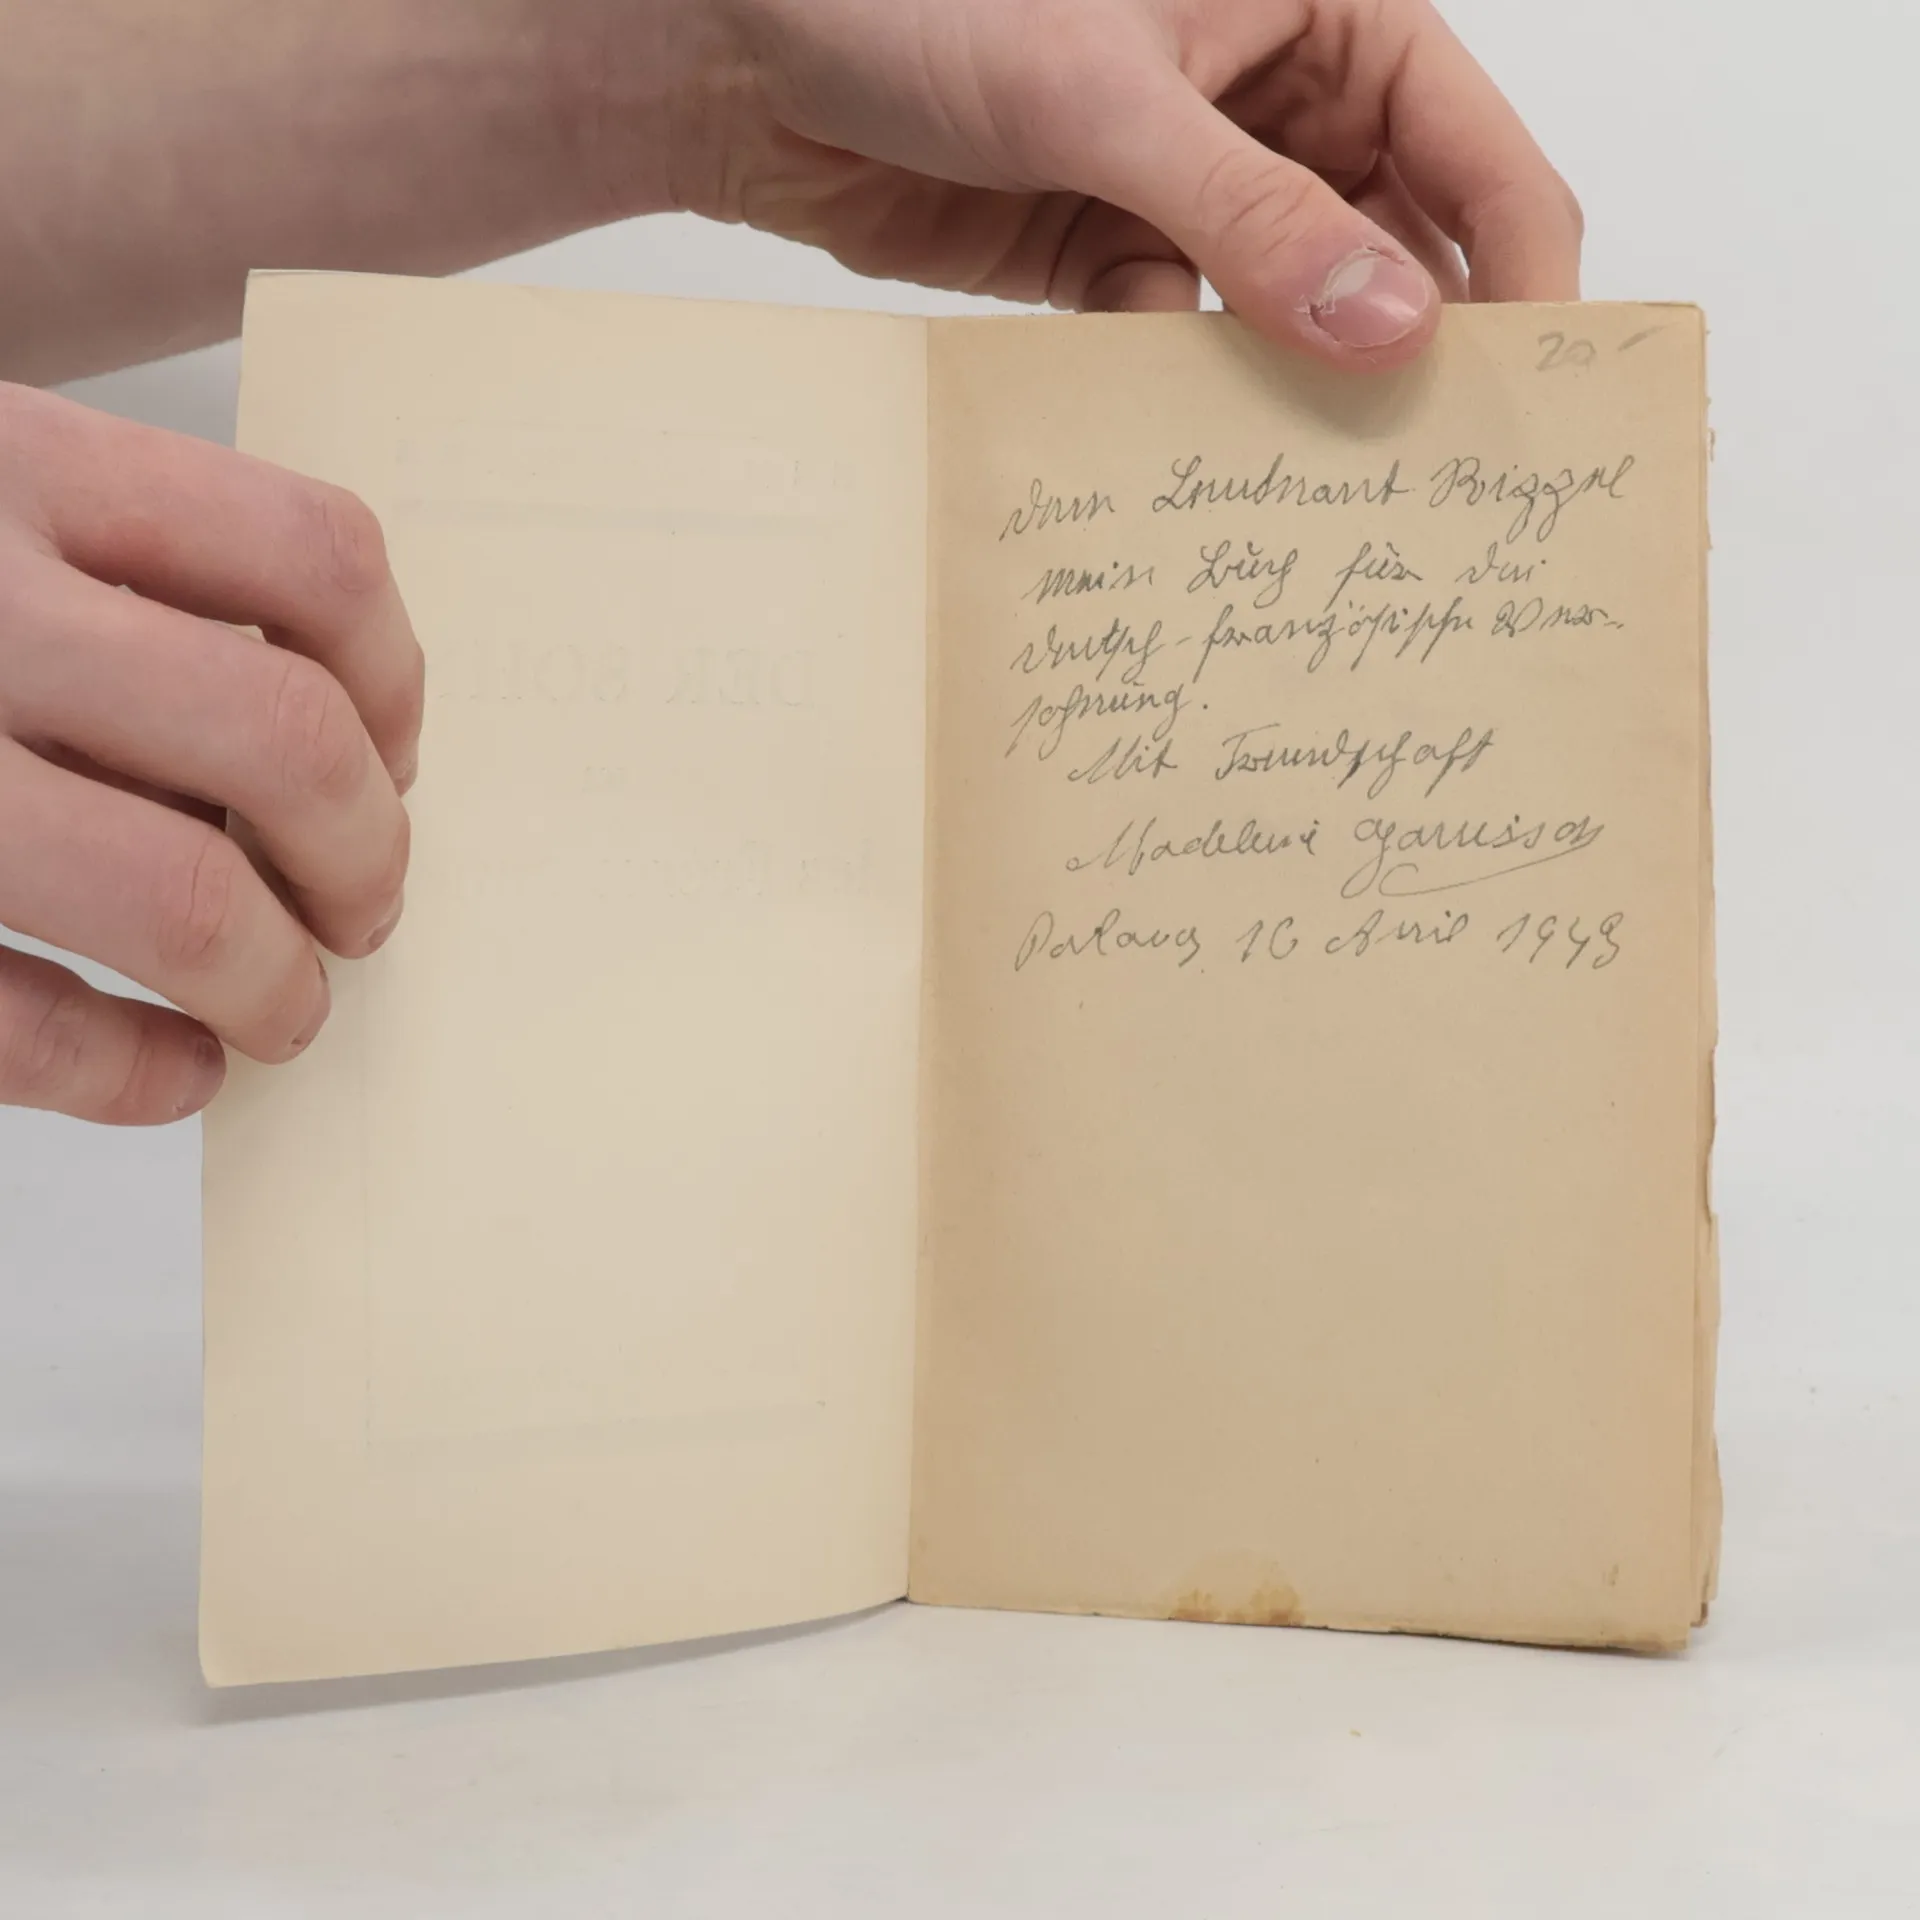 20 -
dem Leutnant Rizzel
mein Buch für die
deutsch-französische Ver-
söhnung.
Mit Freundschaft
Madeleine
Palavas 16 April 1943
DER SOH